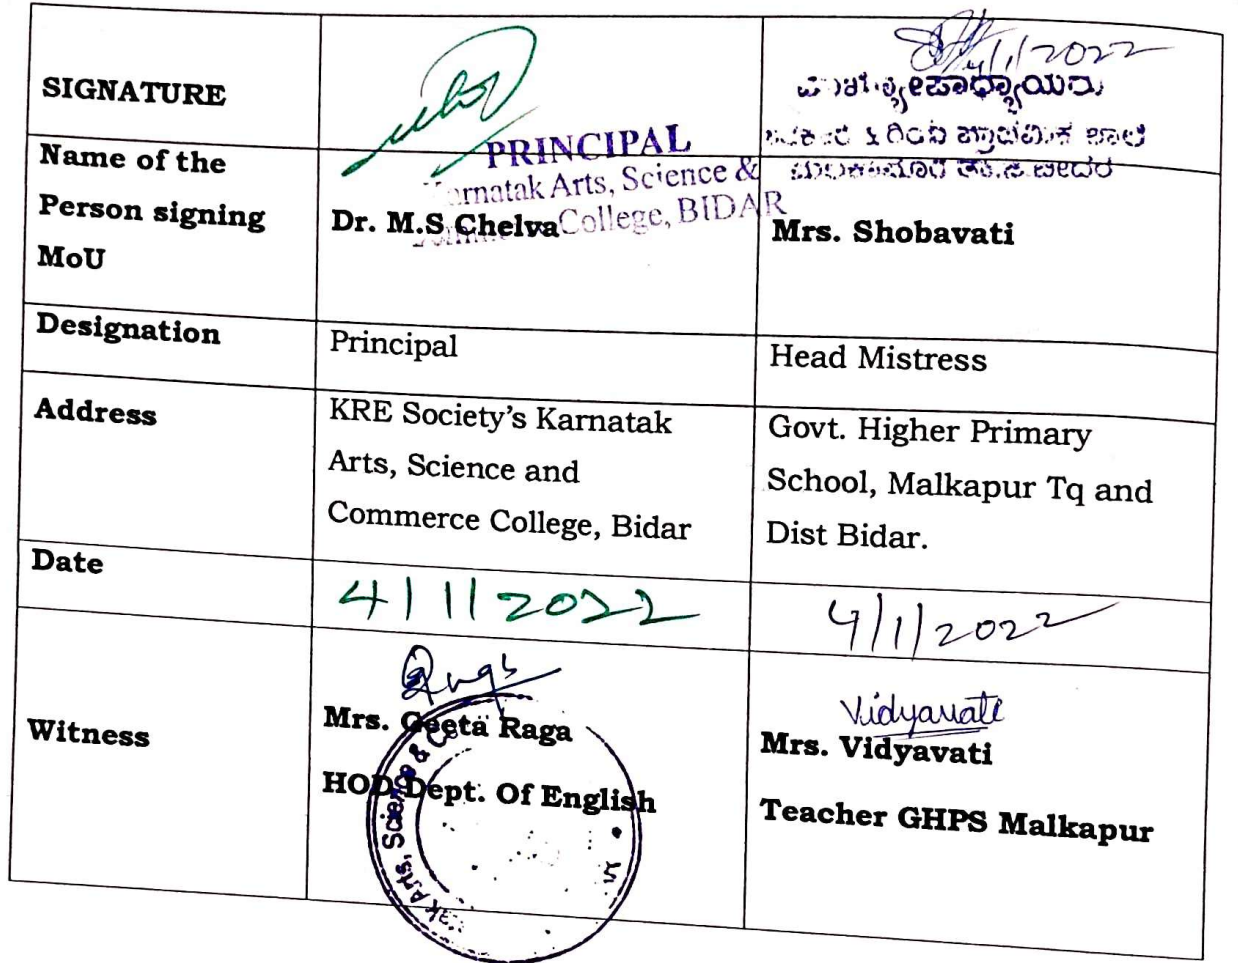 SIGNATURE
4/1/2022
PRINCIPAL
Karnatak Arts, Science &
College, BIDAR
ಪ್ರಾಥಮಿಕ ಶಾಲೆ
ಬೀದರ
Name of the
Person signing
MoU
Dr. M.S Chelva
Mrs. Shobavati
Designation
Principal
Head Mistress
Address
KRE Society's Karnatak
Arts, Science and
Commerce College, Bidar
Govt. Higher Primary
School, Malkapur Tq and
Dist Bidar.
Date
4/1/2022
4/1/2022
Witness
Mrs. Geeta Raga
HOD Dept. Of English
Arts, Science &
Vidyavati
Mrs. Vidyavati
Teacher GHPS Malkapur